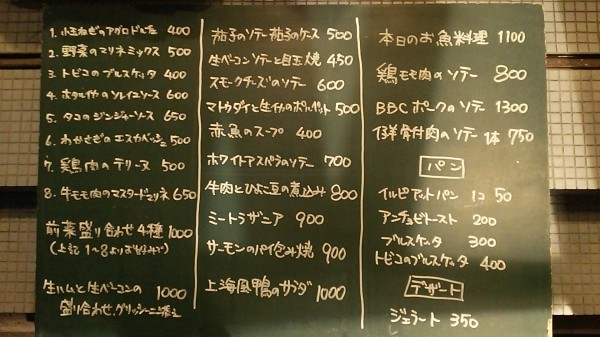 1. 小玉ねぎのアグロドルチェ 400
2. 野菜のマリネミックス 500
3. トビコのブルスケッタ 400
4. ホタルイカのソレイユソース 600
5. タコのジンジャーソース 650
6. わかさぎのエスカベッシュ 500
7. 鶏肉のテリーヌ 500
8. 牛モモ肉のマスタードマリネ 650
前菜盛り合わせ4種 1000
(上記1〜8よりお好みで)
生ハムと生ベーコンの 1000
盛り合わせ、グリッシーニ添え
茄子のソテー茄子のソース 500
生ベーコンソテーと目玉焼 450
スモークチーズのソテー 600
マトウダイと生イカのポルペット 500
赤魚のスープ 400
ホワイトアスパラのソテー 700
牛肉とひよこ豆の煮込み 800
ミートラザニア 900
サーモンのパイ包み焼 900
上海風鴨のサラダ 1000
本日のお魚料理 1100
鶏モモ肉のソテー 800
BBCポークのソテー 1300
仔羊骨付肉のソテー 1本 750
パン
イルピアットパン 1コ 50
アンチョビトースト 200
ブルスケッタ 300
トビコのブルスケッタ 400
デザート
ジェラート 350